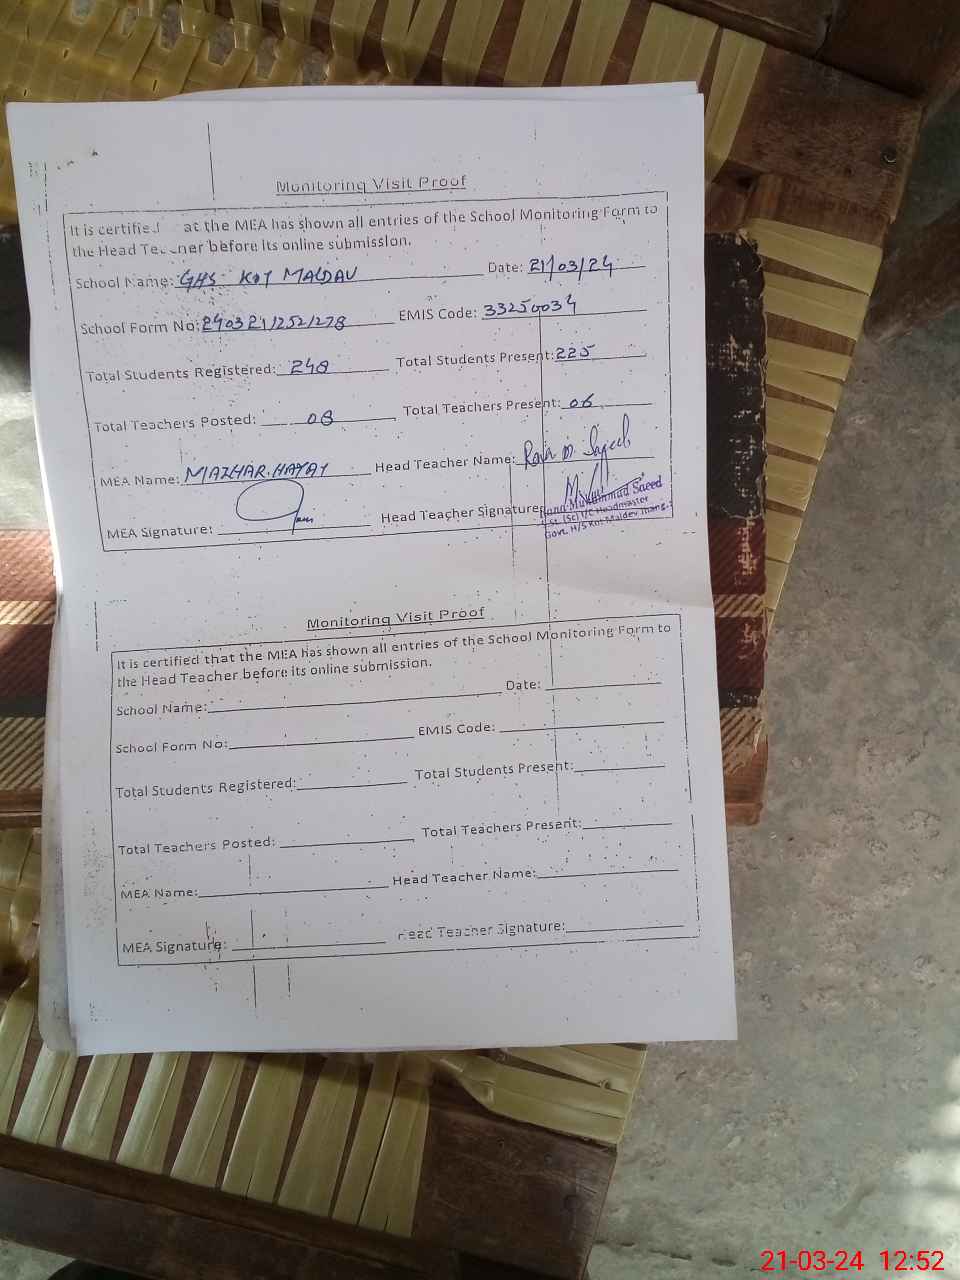 Monitoring Visit Proof
It is certified at the MEA has shown all entries of the School Monitoring Form to
the Head Teacher before its online submission.
School Name: GHS KOT MALDAV Date: 21/03/24
School Form No: 240321/252/278 EMIS Code: 33250034
Total Students Registered: 248 Total Students Present: 225
Total Teachers Posted: 08 Total Teachers Present: 06
MEA Name: MAZHAR HAYAT Head Teacher Name: Rana M. Saeed
MEA Signature: Head Teacher Signature:
Rana Muhammad Saeed
SST (Sc) I/C Headmaster
Govt. H/S Kot Maldev Jhang.
Monitoring Visit Proof
It is certified that the MEA has shown all entries of the School Monitoring Form to
the Head Teacher before its online submission.
School Name: Date:
School Form No: EMIS Code:
Total Students Registered: Total Students Present:
Total Teachers Posted: Total Teachers Present:
MEA Name: Head Teacher Name:
MEA Signature: Head Teacher Signature:
21-03-24 12:52